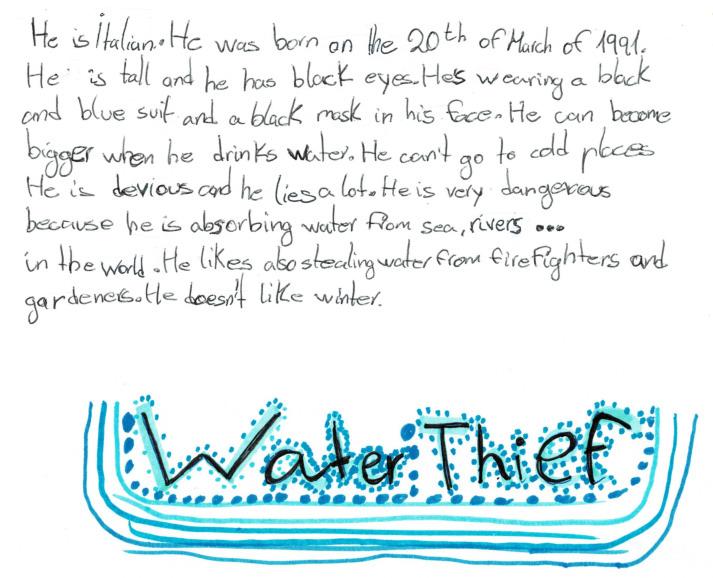 He is Italian. He was born on the 20th of March of 1991.
He is tall and he has black eyes. He's wearing a black
and blue suit and a black mask in his face. He can become
bigger when he drinks water. He can't go to cold places
He is devious and he lies a lot. He is very dangerous
because he is absorbing water from sea, rivers ...
in the world. He likes also stealing water from firefighters and
gardeners. He doesn't like winter.
Water Thief